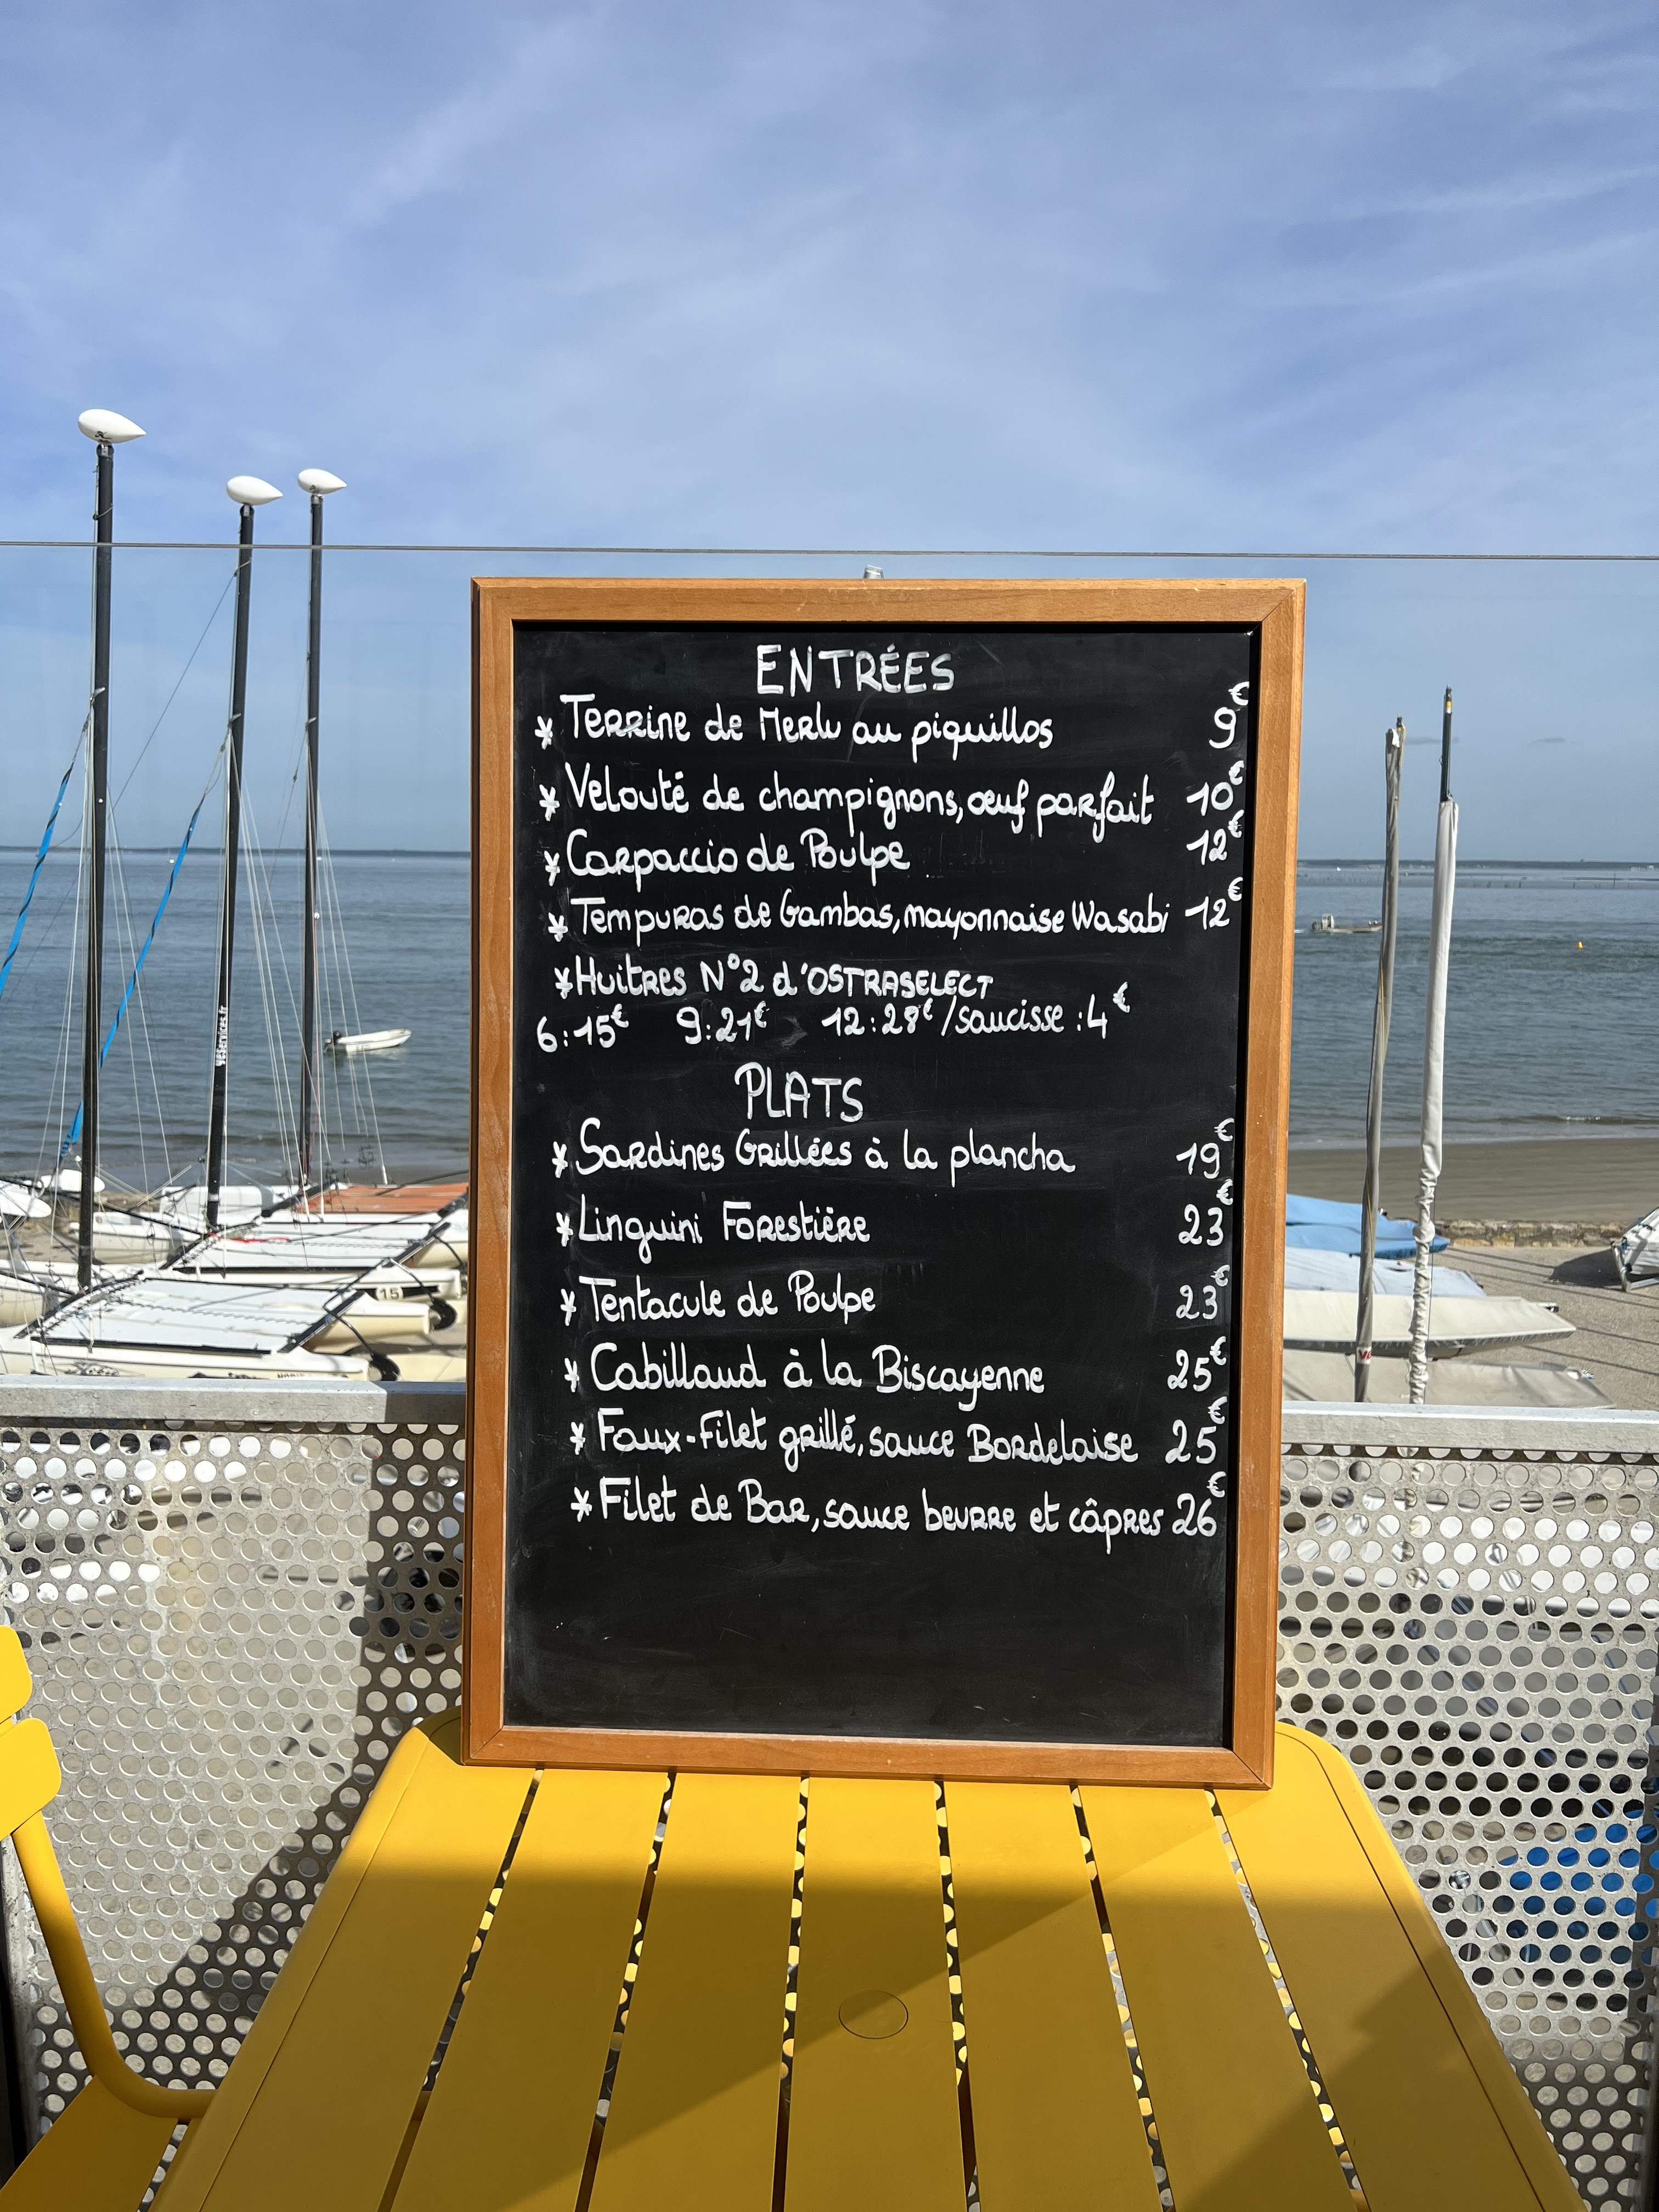 ENTRÉES
* Terrine de Merlu au piquillos 9€
* Velouté de champignons, œuf parfait 10€
* Carpaccio de Poulpe 12€
* Tempuras de Gambas, mayonnaise Wasabi 12€
* Huitres N°2 d'OSTRASELECT
6:15€ 9:21€ 12:28€/saucisse :4€
PLATS
* Sardines Grillées à la plancha 19€
* Linguini Forestière 23€
* Tentacule de Poulpe 23€
* Cabillaud à la Biscayenne 25€
* Faux-Filet grillé, sauce Bordelaise 25€
* Filet de Bar, sauce beurre et câpres 26€
15